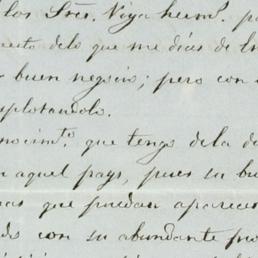 los Sres. Viya herms. p
uesto delo que me dices de
buen negocio; pero con
splotandolo.
nocimto. que tengo dela d
n aquel pays, pues su bu
nas que puedan aparecer
do con su abundante pro